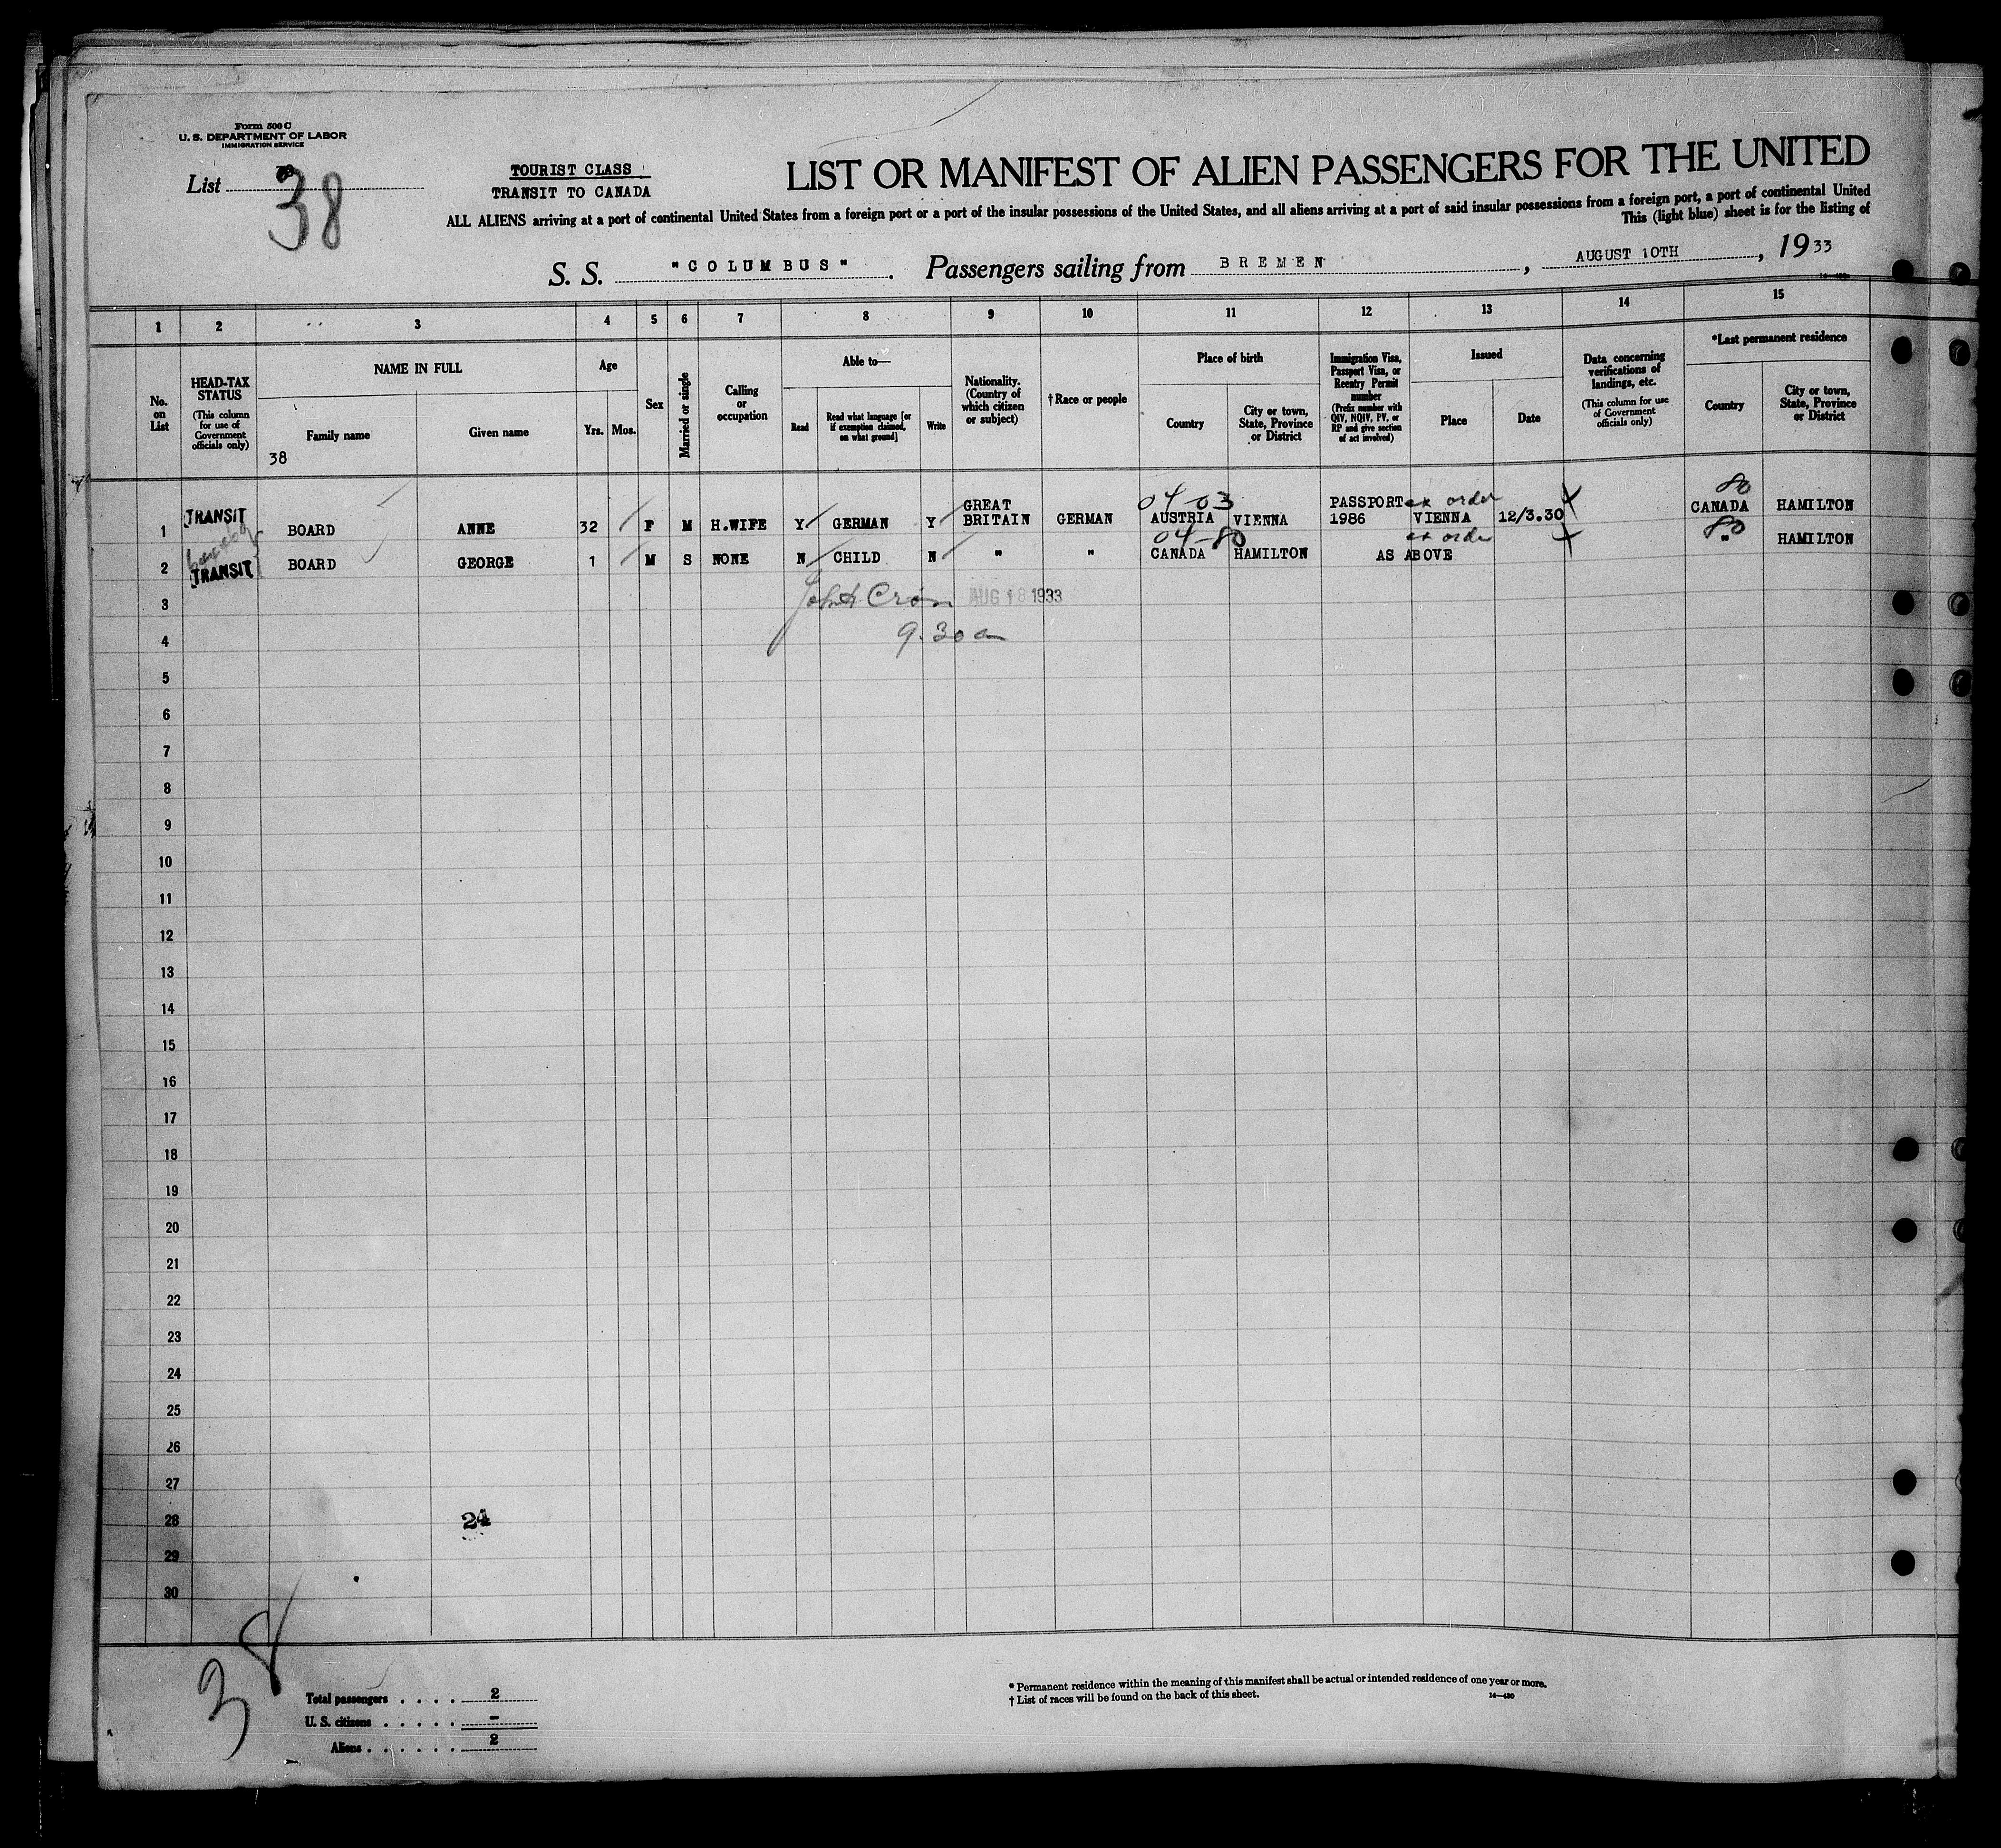 Form 500 C
U. S. DEPARTMENT OF LABOR
IMMIGRATION SERVICE
List
38
TOURIST CLASS
TRANSIT TO CANADA
LIST OR MANIFEST OF ALIEN PASSENGERS FOR THE UNITED
ALL ALIENS arriving at a port of continental United States from a foreign port or a port of the insular possessions of the United States, and all aliens arriving at a port of said insular possessions from a foreign port, a port of continental United
This (light blue) sheet is for the listing of
S. S. "COLUMBUS". Passengers sailing from BREMEN, AUGUST 10TH, 1933
1 2 3 4 5 6 7 8 9 10 11 12 13 14 15
No. on List
HEAD-TAX STATUS
(This column for use of Government officials only)
NAME IN FULL
Family name
Given name
38
Age
Yrs. Mos.
Sex
Married or single
Calling or occupation
Able to—
Read
Read what language [or if exemption claimed, on what ground]
Write
Nationality. (Country of which citizen or subject)
†Race or people
Place of birth
Country
City or town, State, Province or District
Immigration Visa, Passport Visa, or Reentry Permit number
(Prefix number with QIV, NQIV, PV, or RP and give section of act involved)
Issued
Place
Date
Data concerning verifications of landings, etc.
(This column for use of Government officials only)
*Last permanent residence
Country
City or town, State, Province or District
04-03 ex order 80
1 TRANSIT BOARD ANNE 32 F M H.WIFE Y GERMAN Y GREAT BRITAIN GERMAN AUSTRIA VIENNA PASSPORT 1986 VIENNA 12/3.30 CANADA HAMILTON
04-80 ex order 80
2 TRANSIT BOARD GEORGE 1 M S NONE N CHILD N " " CANADA HAMILTON AS ABOVE " HAMILTON
3 AUG 18 1933
4 9.30 a
5
6
7
8
9
10
11
12
13
14
15
16
17
18
19
20
21
22
23
24
25
26
27
28 24
29
30
38
Total passengers . . . . 2
U. S. citizens . . . . . –
Aliens . . . . . . 2
* Permanent residence within the meaning of this manifest shall be actual or intended residence of one year or more.
† List of races will be found on the back of this sheet.
14—430